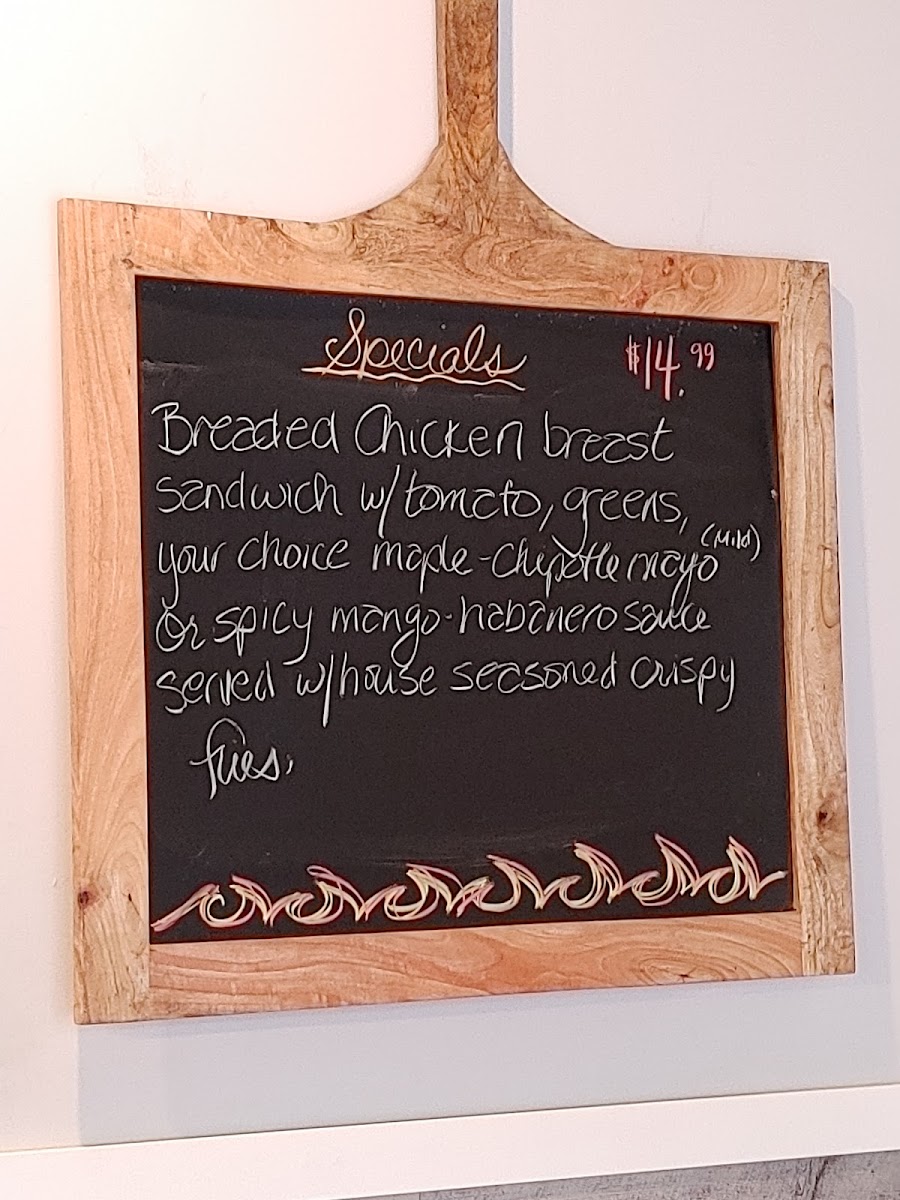 Specials $14.99
Breaded Chicken breast
sandwich w/tomato, greens,
your choice maple-chipotle mayo (Mild)
or spicy mango-habanero sauce
served w/house seasoned crispy
fries.